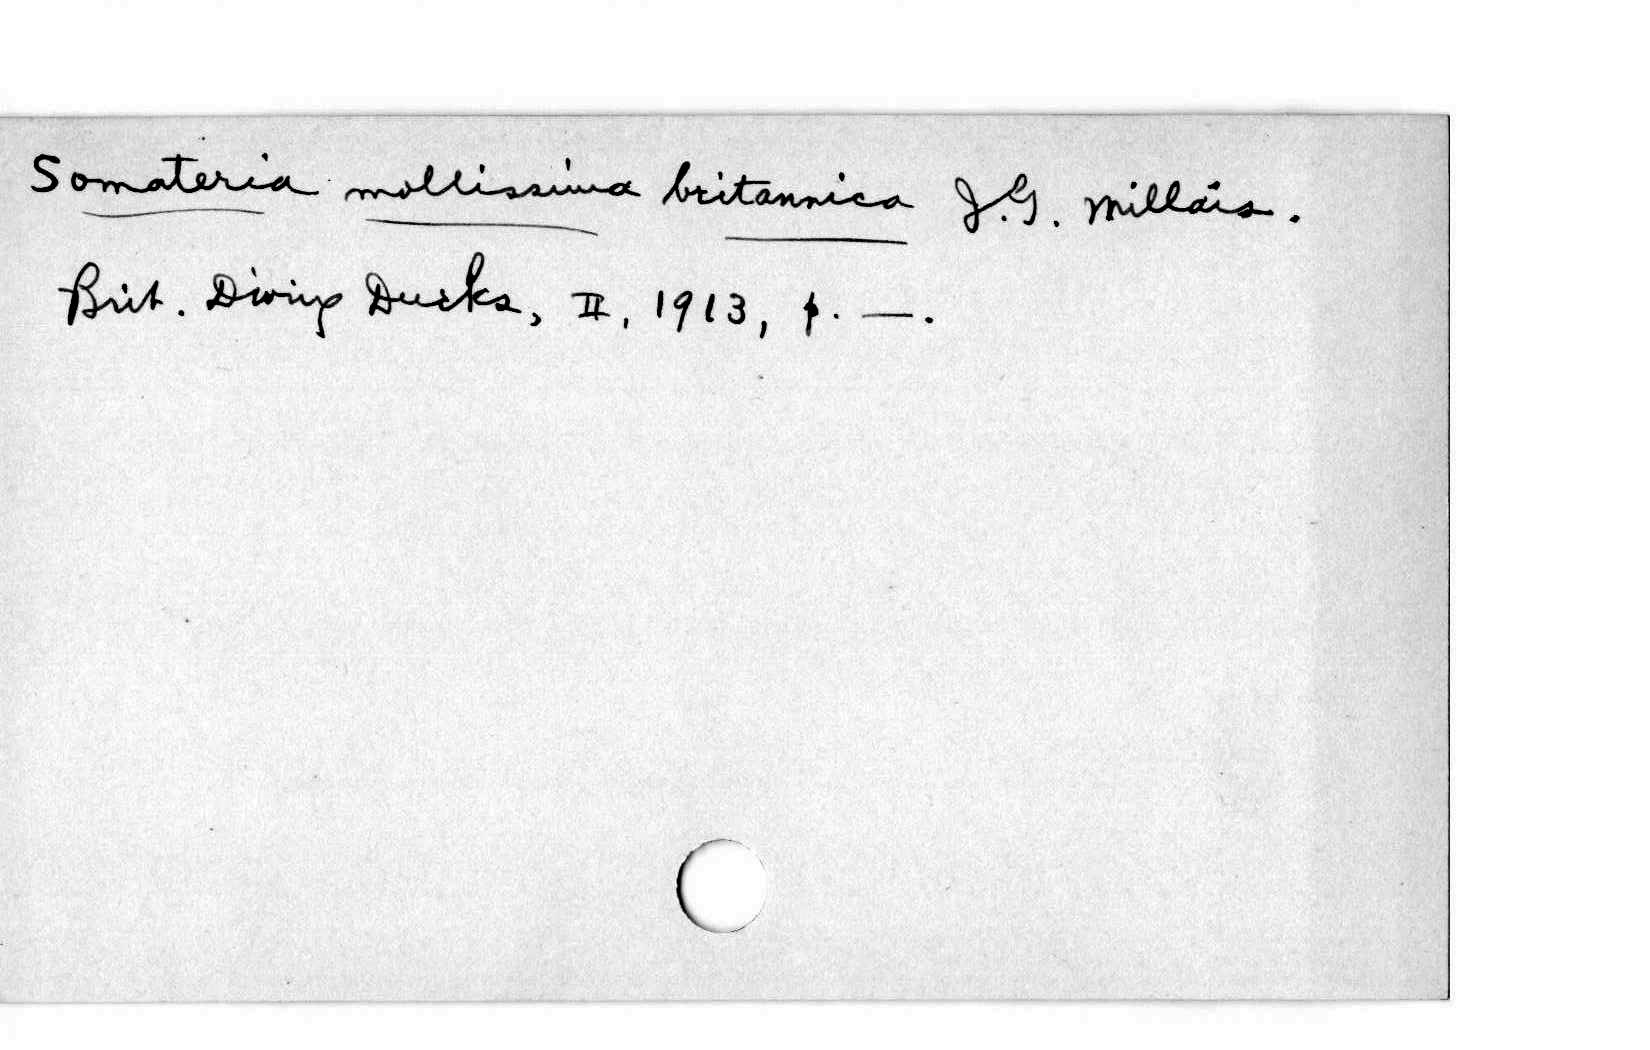 Somateria mollissima britannica J.G. Millais.
Brit. Diving Ducks, II, 1913, p. —.